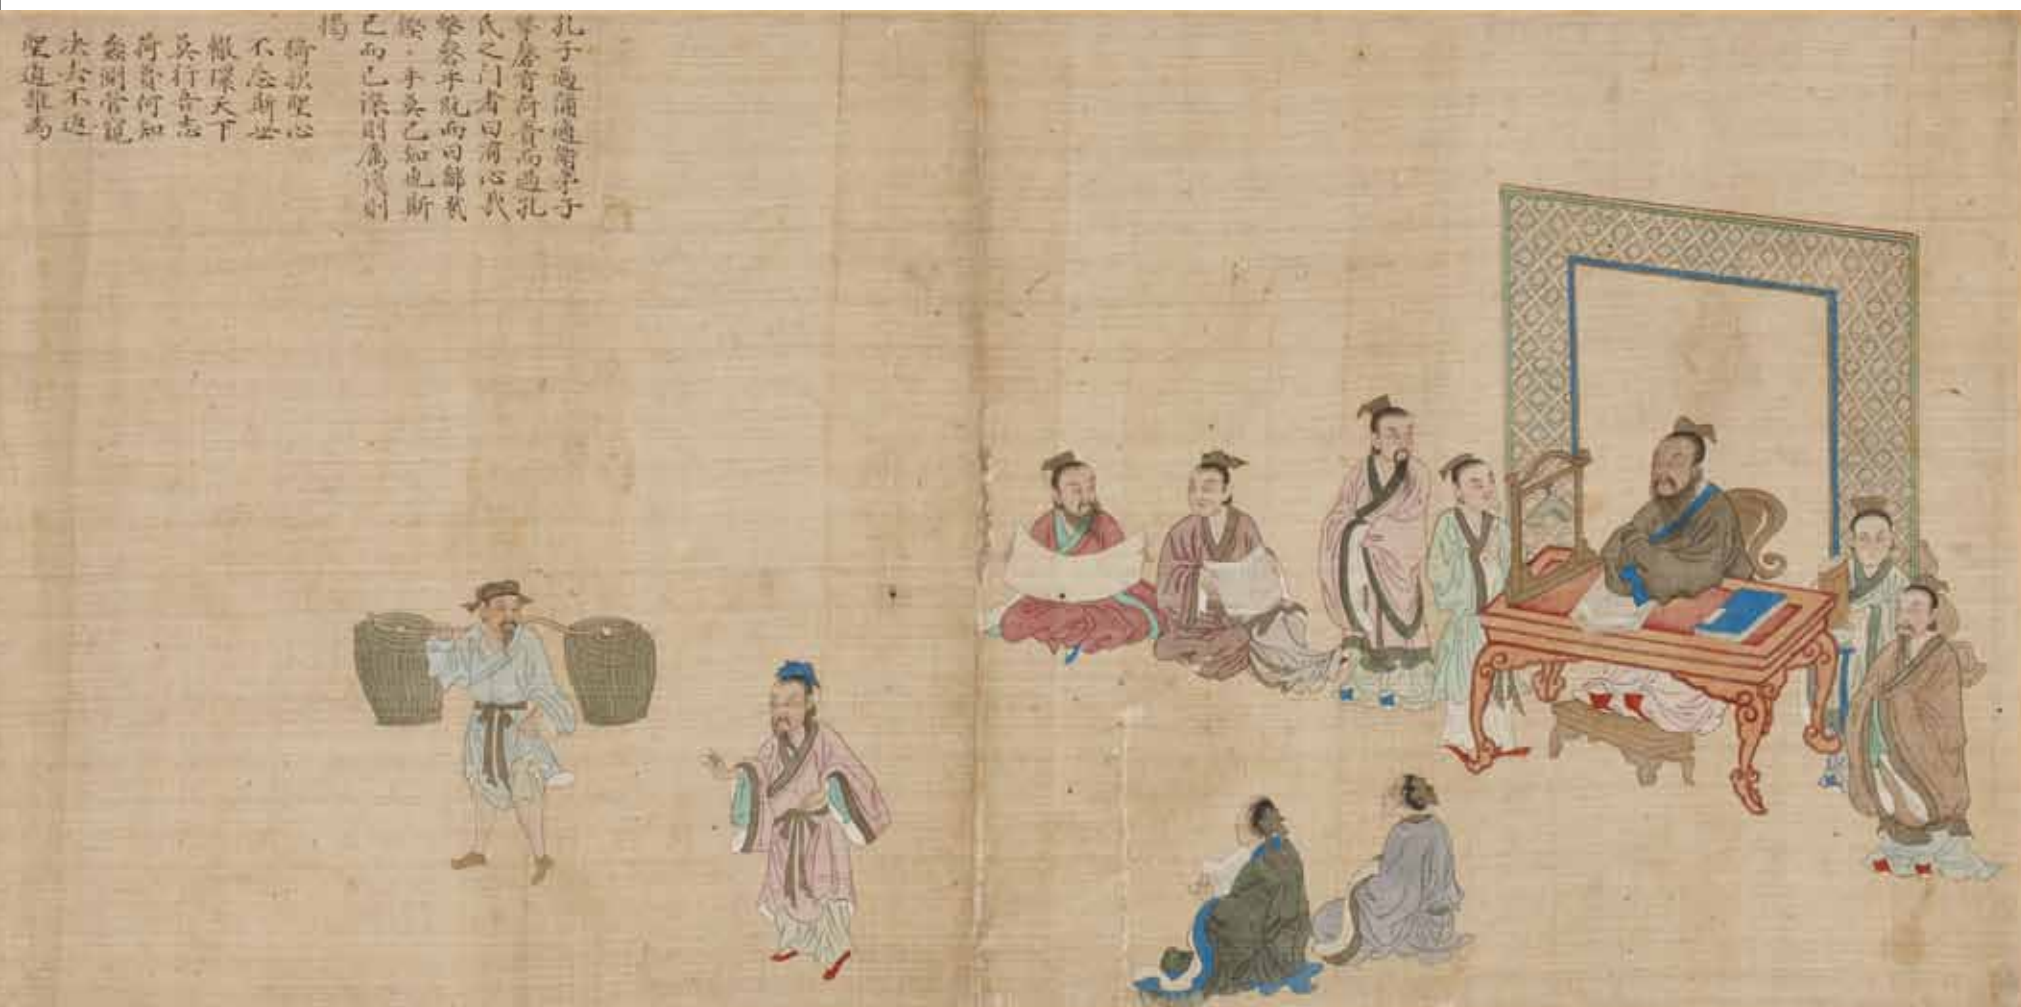 孔子過蒲適衛弟子
擊磬有荷蕢而過孔
氏之门者曰有心哉
擊磬乎既而曰鄙哉
硜々乎莫己知也斯
已而已深則厲淺則
揭
猗歟聖心
不忘斯世
轍環天下
莫行吾志
荷蕢何知
蠡測管窺
决去不返
聖道難為